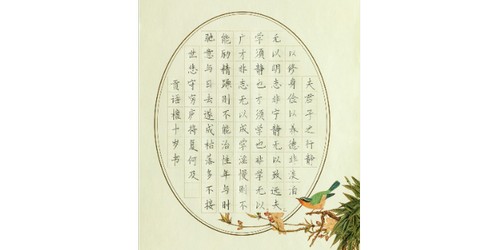 夫君子之行静
以修身俭以养德非淡泊
无以明志非宁静无以致远夫
学须静也才须学也非学无以
广才非志无以成学淫慢则不
能励精躁则不能治性年与时
驰意与日去遂成枯落多不接
世悲守穷庐将复何及
贾语橙十岁书